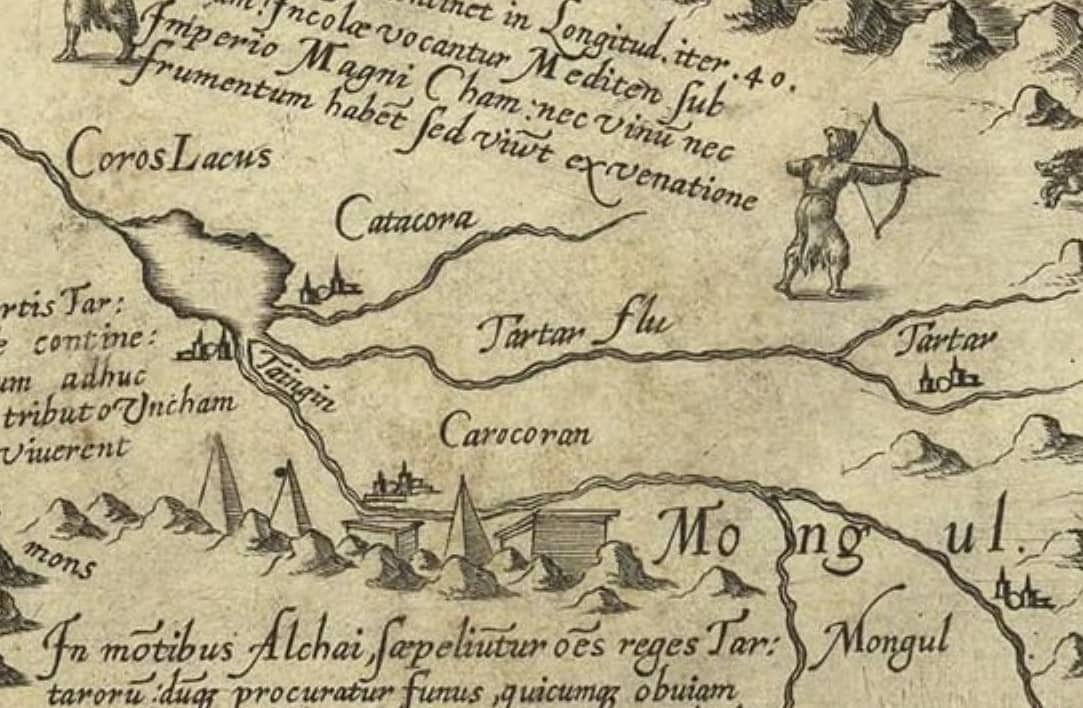 in Longitud. iter. 40.
Incolæ vocantur Mediten sub
Imperio Magni Cham: nec vinū nec
frumentum habēt sed viuūt ex venatione
Coros Lacus
Catacora
rtis Tar:
contine:
um adhuc
tributo Vncham
viuerent
Tartar flu
Tartar
Taingin
Carocoran
Mongul.
mons
Mongul
In mōtibus Alchai, sæpeliūtur oēs reges Tar:
tarorū: dūqȝ procuratur funus, quicumqȝ obuiam